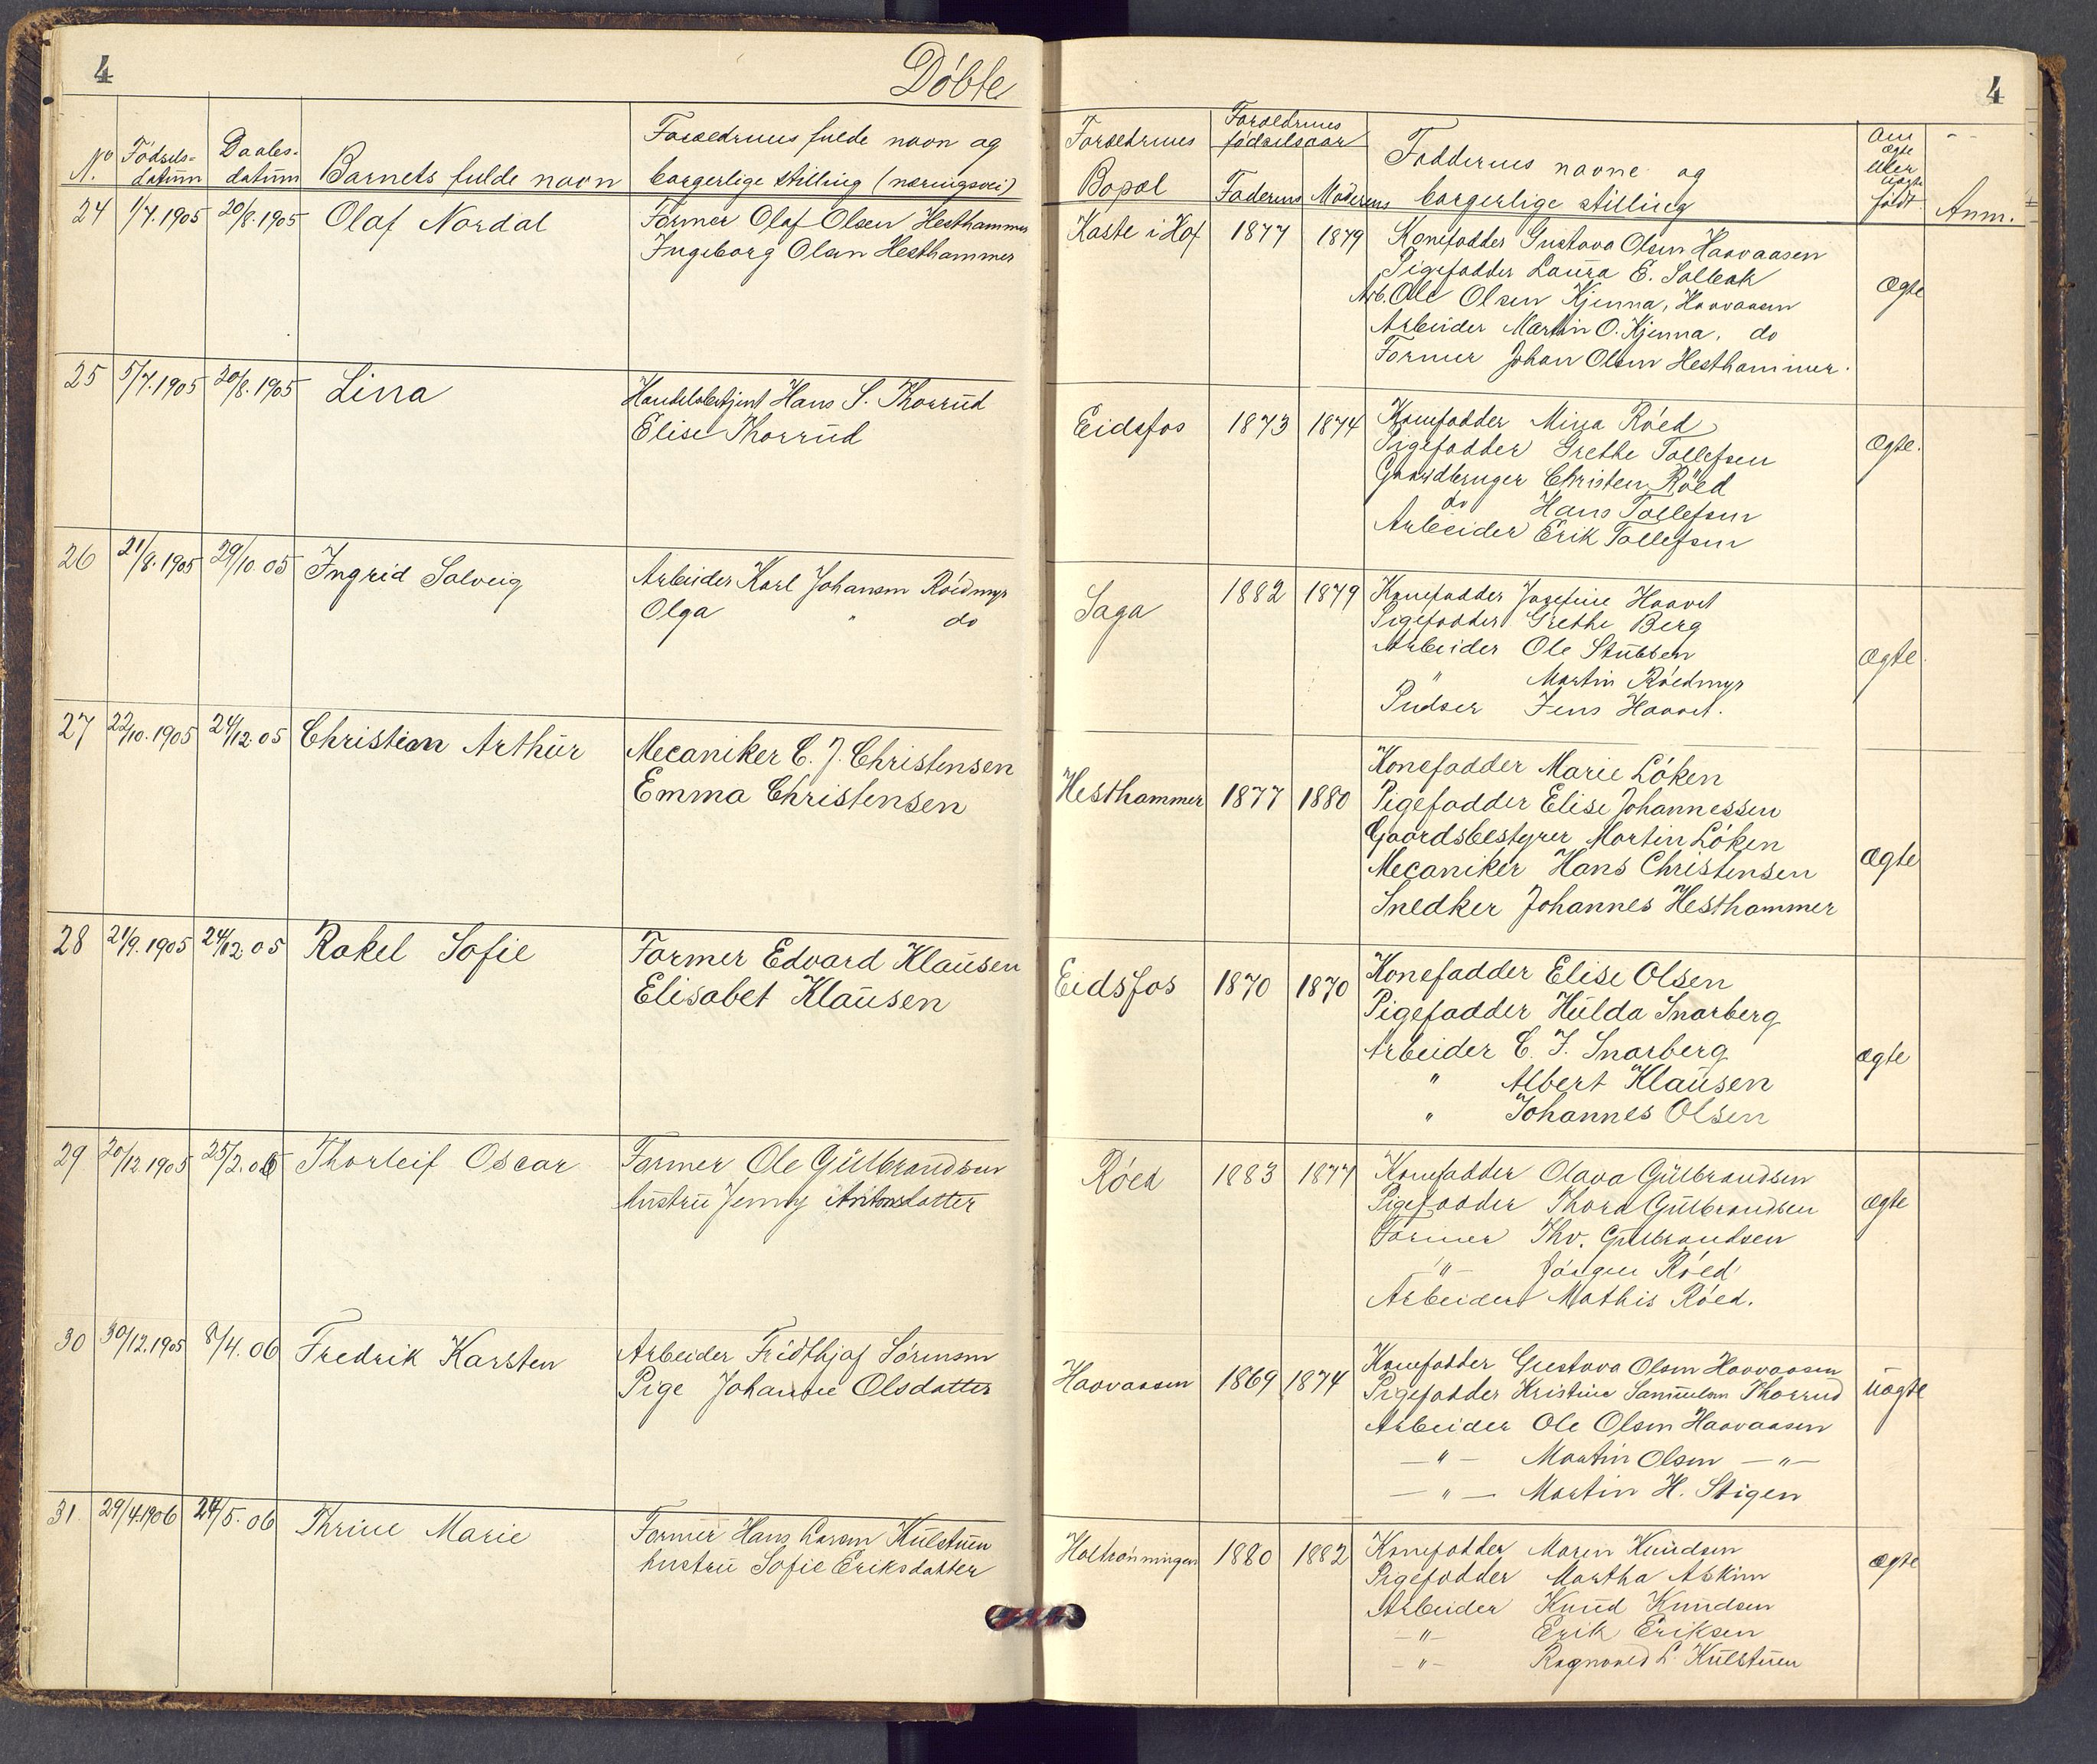 4
Döbte
No
N.
Födsels-
datum
Daabs-
datum
Barnets fulde navn
Foraeldrenes fulde navn og
borgerlige stilling (næringsvei)
24 1/7.1905 20/8.1905 Olaf Nordal
Former Olaf Olsen Hesthammer
Ingeborg Olsen Hesthammer
25 5/7.1905 20/8.1905 Lina
Handelsbetjent Hans S. Thorrud
Elise Thorrud
26 21/8.1905 29/10.05 Ingrid Solveig
Arbeider Karl Johansen Röedmyr
Olga " do
27 22/10.1905 24/12.05 Christian Arthur
Mecaniker C. J. Christensen
Emma Christensen
28 21/9.1905 24/12.05 Rakel Sofie
Former Edvard Klausen
Elisabet Klausen
29 20/12.1905 25/2.06 Thorleif Oscar
Former Ole Gulbrandsen
hustru Jenny Antonsdatter
30 30/12.1905 8/4.06 Fredrik Karsten
Arbeider Fridthjof Sörensen
Pige Johanne Olsdatter
31. 29/4.1906 24/5.06 Thrine Marie
Former Hans Larsen Kulstuen
hustru Sofie Eriksdatter
4
Foraeldrenes
Bopæl
Foraeldrenes
födselsaar
Faderens Moderens
Faddernes navne og
borgerlige stilling
Om
ægte
eller
uægte
født.
Anm.
Kaste i Hof 1877 1879 Konefadder Gustava Olsen Haavaasen
Pigefadder Laura E. Solbak
Arb. Ole Olsen Kjenna, Haavaasen
Arbeider Martin O. Kjenna, do
Former Johan Olsen Hesthammer.
Ægte
Eidsfos 1873 1874 Konefadder Mina Röed
Pigefadder Grethe Tollefsen
Gaardbruger Christen Röed
do Hans Tollefsen
Arbeider Erik Tollefsen
Ægte.
Saga 1882 1879 Konefadder Josefine Haavet
Pigefadder Grethe Berg
Arbeider Ole Stubben
" Martin Röedmyr
Pudser Jens Haavet.
Ægte
Hesthammer 1877 1880 Konefadder Marie Löken
Pigefadder Elise Johannessen
Gaardsbestyrer Martin Löken
Mecaniker Hans Christensen
Snedker Johannes Hesthammer
Ægte
Eidsfos 1870 1870 Konefadder Elise Olsen
Pigefadder Hulda Snarberg
Arbeider C. J. Snarberg
" Albert Klausen
" Johannes Olsen
ægte
Röed 1883 1877 Konefadder Olava Gulbrandsen
Pigefadder Thora Gulbrandsen
Former Thv. Gulbrandsen
-"- Jörgen Röed
Arbeider Mathis Röed.
Ægte
Haavaasen 1869 1874 Konefadder Gustava Olsen Haavaasen
Pigefadder Kristine Samuelsen Thorrud
Arbeider Ole Olsen Haavaasen
-"- Martin Olsen -"-
-"- Martin H. Stigen
uægte
Holtrönningen 1880 1882 Konefadder Maren Knudsen
Pigefadder Martha Askim
Arbeider Knud Knudsen
-"- Erik Eriksen
-"- Ragnvald L. Kulstuen
ægte